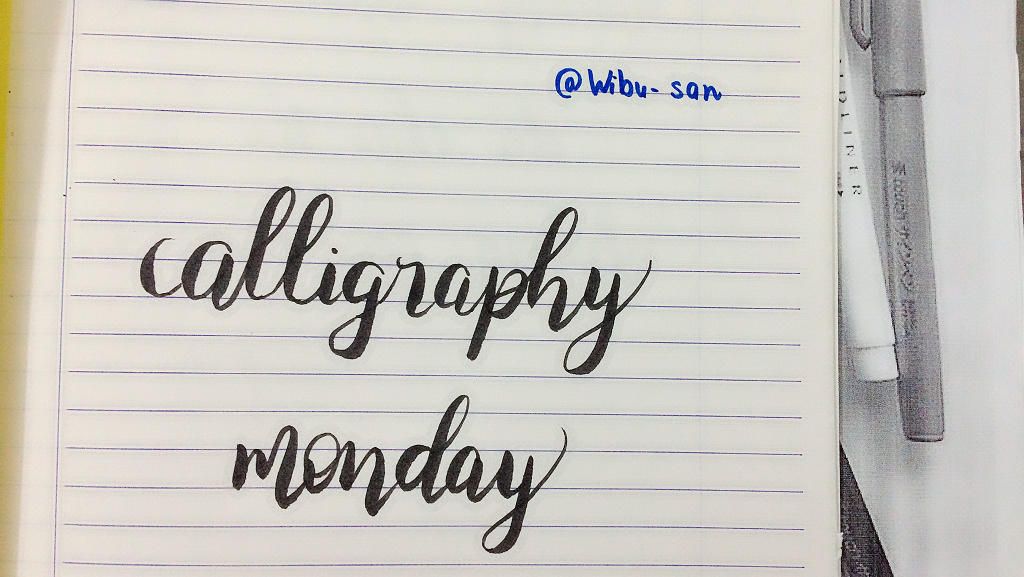 @Wibu-san
calligraphy
monday